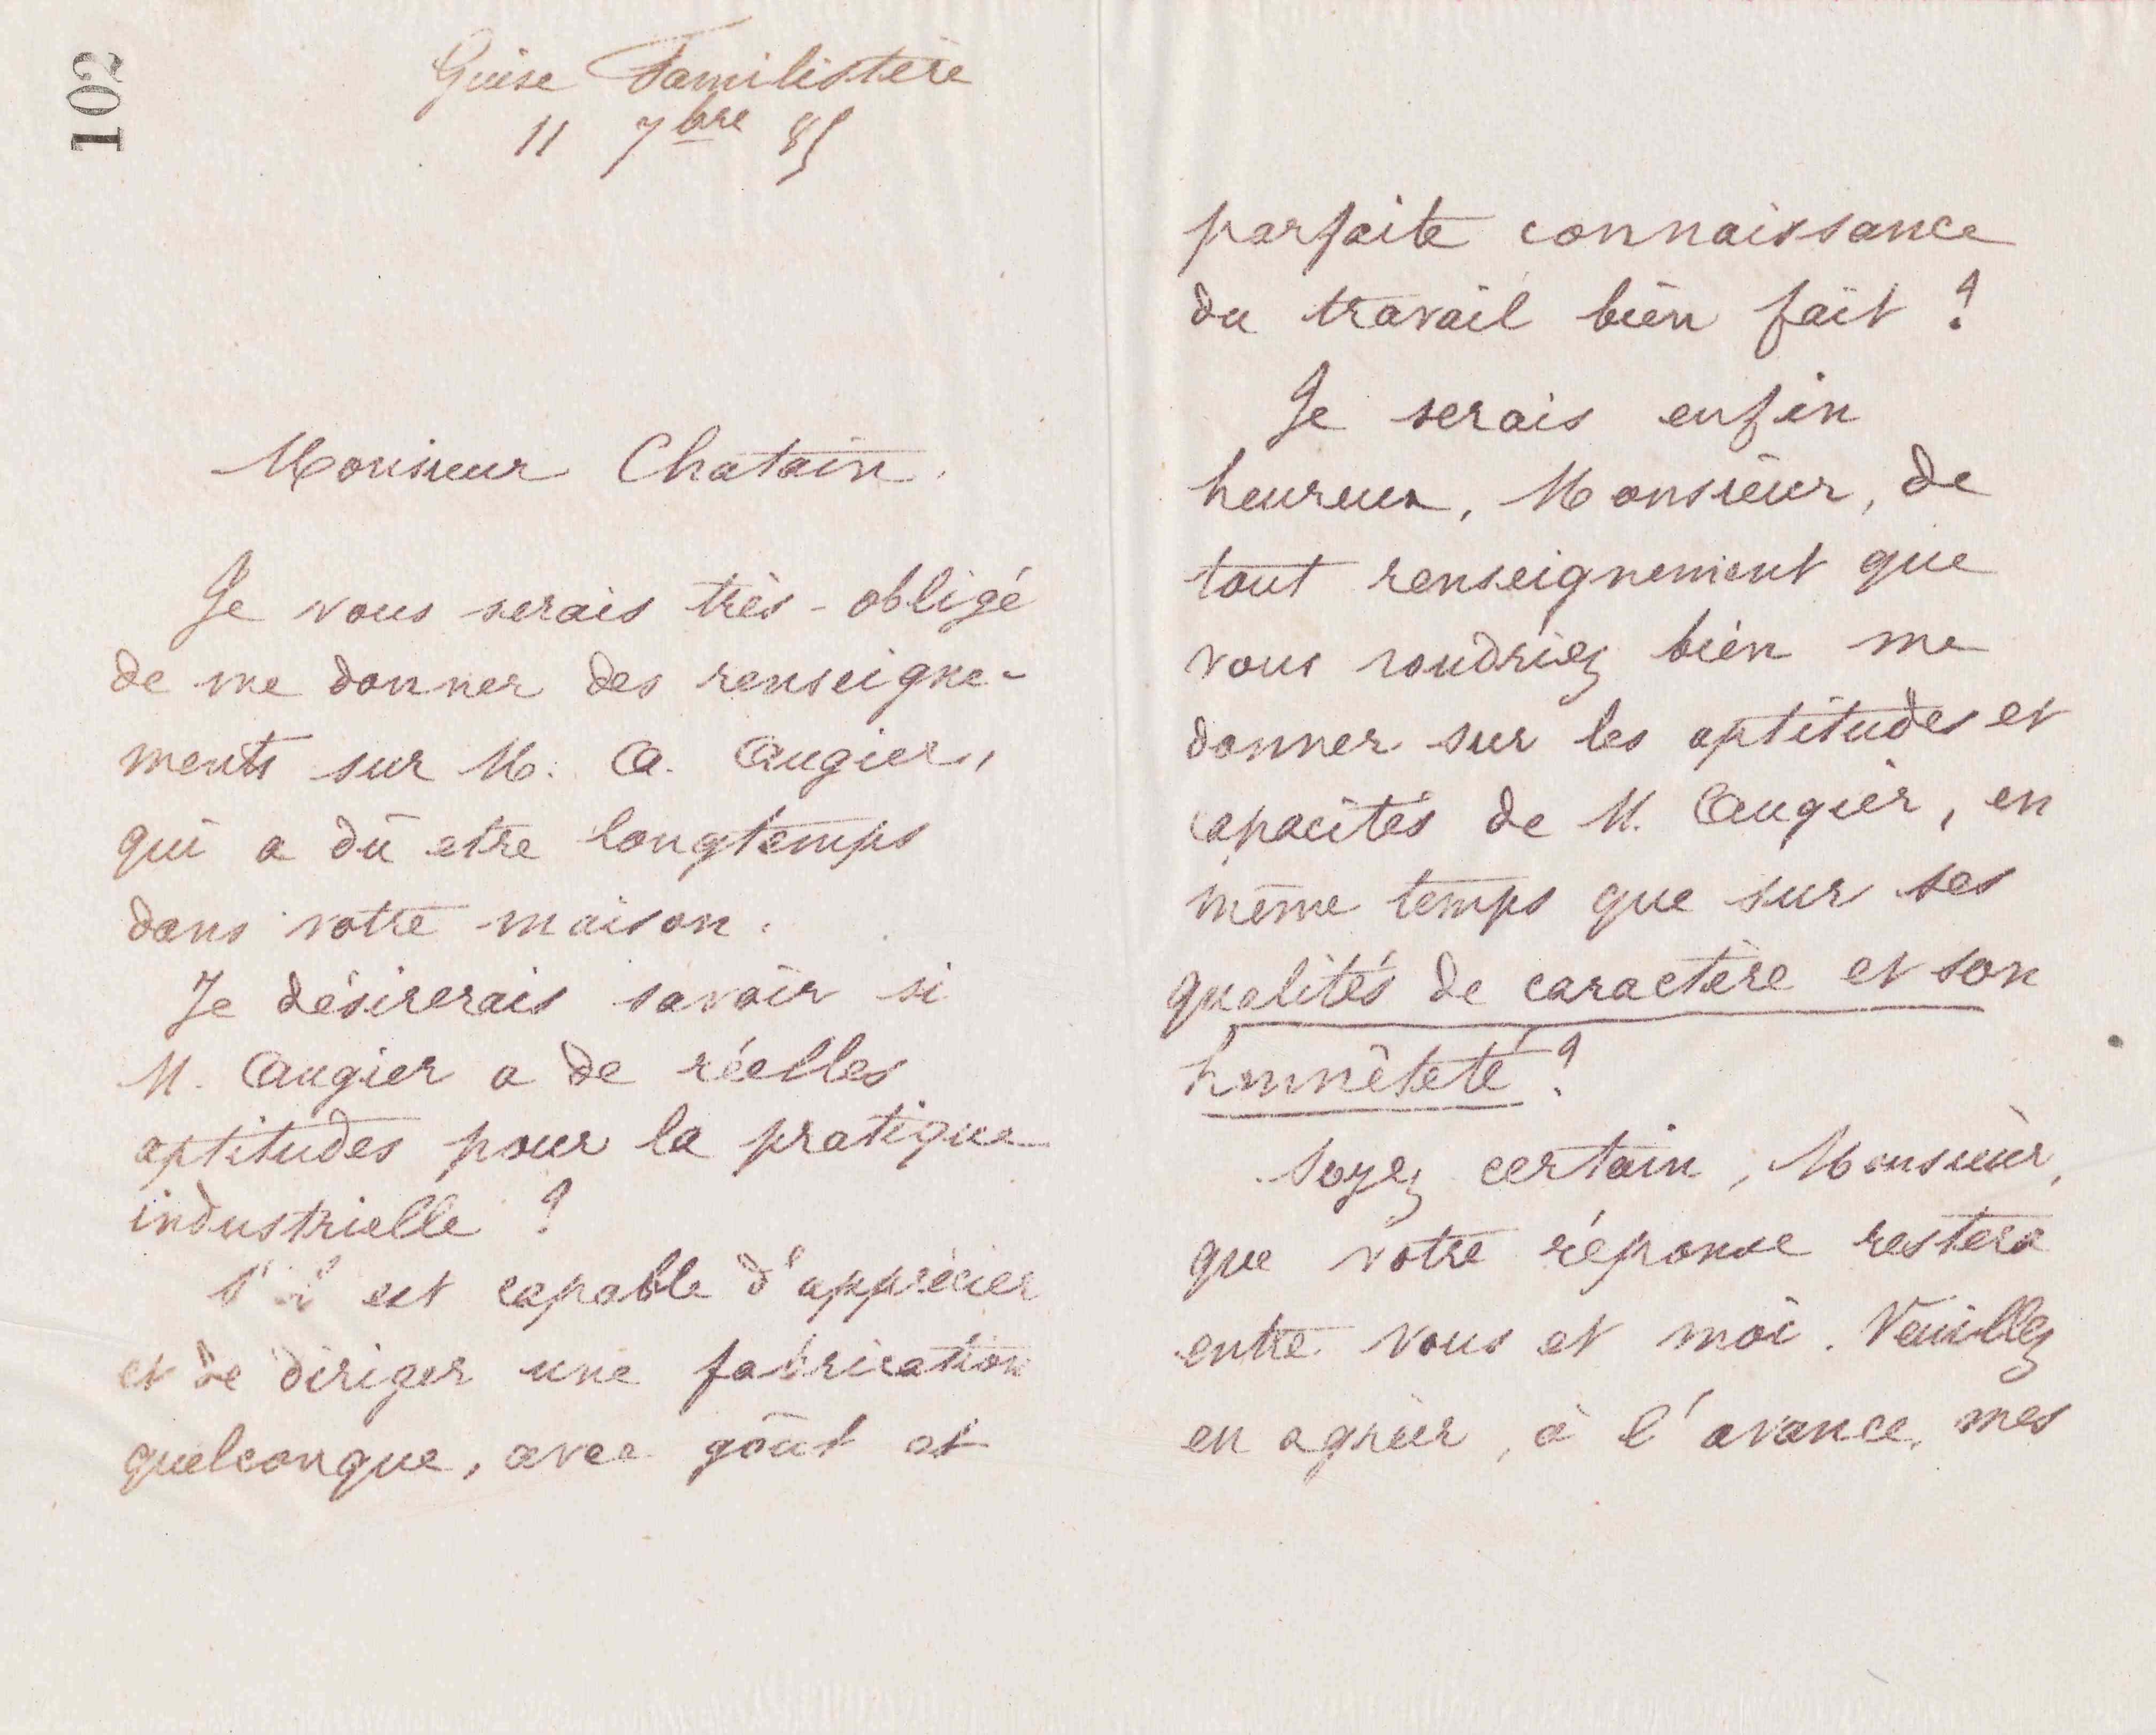 102
Guise Familistère
11 7bre 85
Monsieur Chatain.
Je vous serais très-obligé
de me donner des renseigne-
ments sur M. A. Augier,
qui a dû etre longtemps
dans votre maison.
Je désirerais savoir si
M. Augier a de réelles
aptitudes pour la pratique
industrielle ?
S'il est capable d'apprécier
et de diriger une fabrication
quelconque, avec goût et
parfaite connaissance
du travail bien fait ?
Je serais enfin
heureux, Monsieur, de
tout renseignement que
vous voudriez bien me
donner sur les aptitudes et
capacités de M. Augier, en
même temps que sur ses
qualités de caractère et son
honnêteté ?
Soyez certain, Monsieur,
que votre réponse restera
entre vous et moi. Veuillez
en agréer, à l'avance, mes